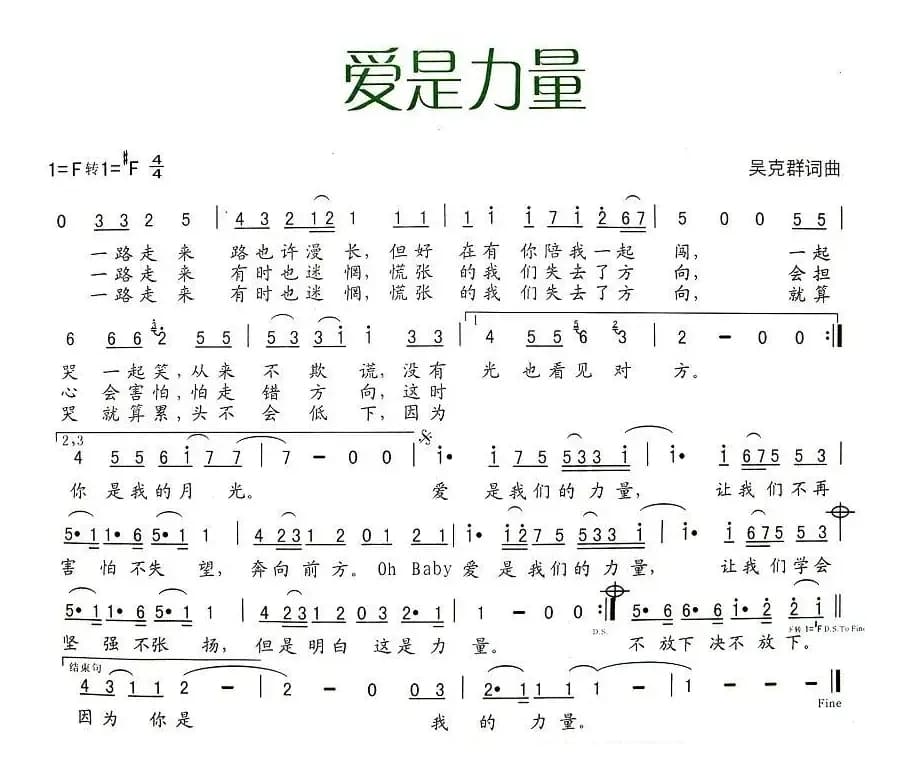 爱是力量
1=F转1=#F 4/4 吴克群词曲
0 3 3 2 5 | 4 3 2 1 2 1 1 1 | 1 1 1 7 1 2 6 7 | 5 0 0 5 5 |
一路走来 路也许漫长,但好 在有你陪我一起 闯,一起
一路走来 有时也迷惘,慌张 的我们失去了方 向,会担
一路走来 有时也迷惘,慌张 的我们失去了方 向,就算
1.
6 6 6 2 5 5 | 5 3 3 1 1 3 3 | 4 5 5 6 3 | 2 - 0 0 :||
哭 一起笑,从来不欺谎,没有 光也看见对方。
心 会害怕,怕走错方向,这时
哭 就算累,头不会低下,因为
2,3
4 5 5 6 1 7 7 | 7 - 0 0 | 1• 1 7 5 5 3 3 1 | 1• 1 6 7 5 5 3 |
你是我的月光。 爱 是我们的力量, 让我们不再
5• 1 1• 6 5• 1 1 | 4 2 3 1 2 0 1 2 1 | 1• 1 2 7 5 5 3 3 1 | 1• 1 6 7 5 5 3
害怕不失望,奔向前方。Oh Baby爱 是我们的力量, 让我们学会
5• 1 1• 6 5• 1 1 | 4 2 3 1 2 0 3 2• 1 | 1 - 0 0 :|| 5• 6 6• 6 1• 2 2 1 ||
D.S.
下转1=#F D.S.To Fine
坚强不张扬,但是明白这是力量。 不放下决不放下。
结束句
4 3 1 1 2 - | 2 - 0 0 3 | 2• 1 1 1 1 1 - | 1 - - - ||
Fine
因为你是 我的力量。